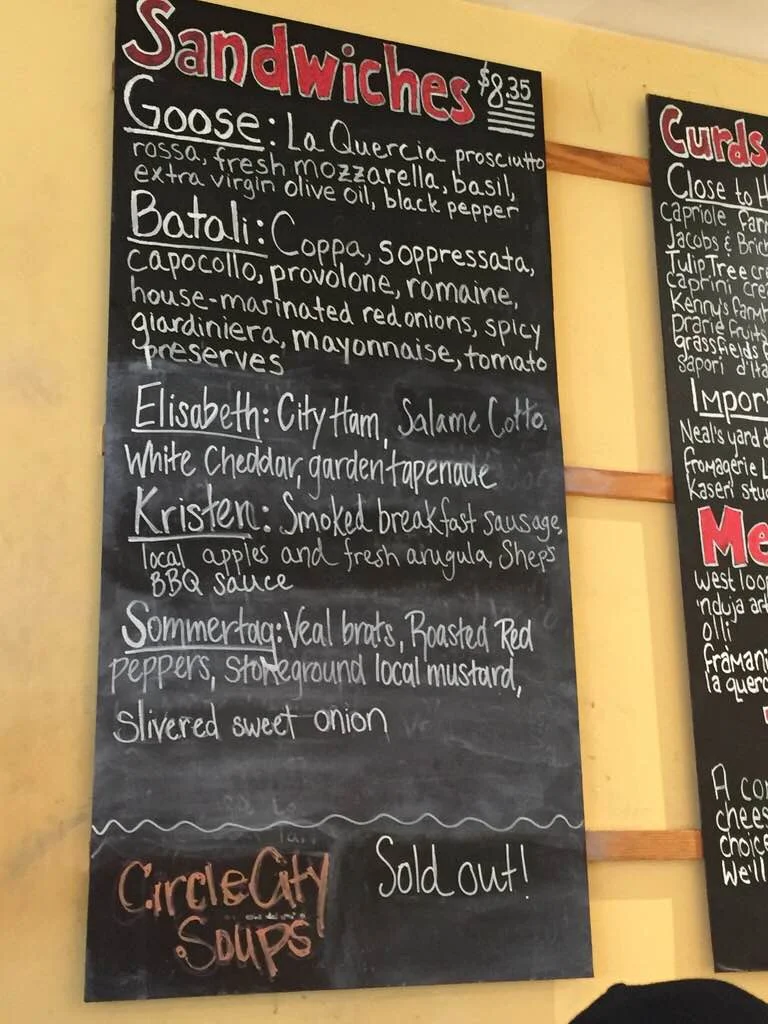 Sandwiches $8.35
Goose: La Quercia prosciutto
rossa, fresh mozzarella, basil,
extra virgin olive oil, black pepper
Batali: Coppa, soppressata,
capocollo, provolone, romaine,
house-marinated red onions, spicy
giardiniera, mayonnaise, tomato
preserves
Elisabeth: City Ham, Salame Cotto,
White Cheddar, garden tapenade
Kristen: Smoked breakfast sausage,
local apples and fresh arugula, Sheps
BBQ sauce
Sommertag: Veal brats, Roasted Red
peppers, Stoneground local mustard,
slivered sweet onion
Circle City
Soups
Sold out!
Curds
Close to H
Capriole Far
Jacobs & Brich
Tulip Tree cre
caprini cre
Kenny's farmh
prarie fruits
grassfields
sapori d'ita
Impor
Neal's yard d
fromagerie L
Kaseri stu
Me
west loop
'nduja art
olli
framani
la querc
A co
chees
choice
We'll